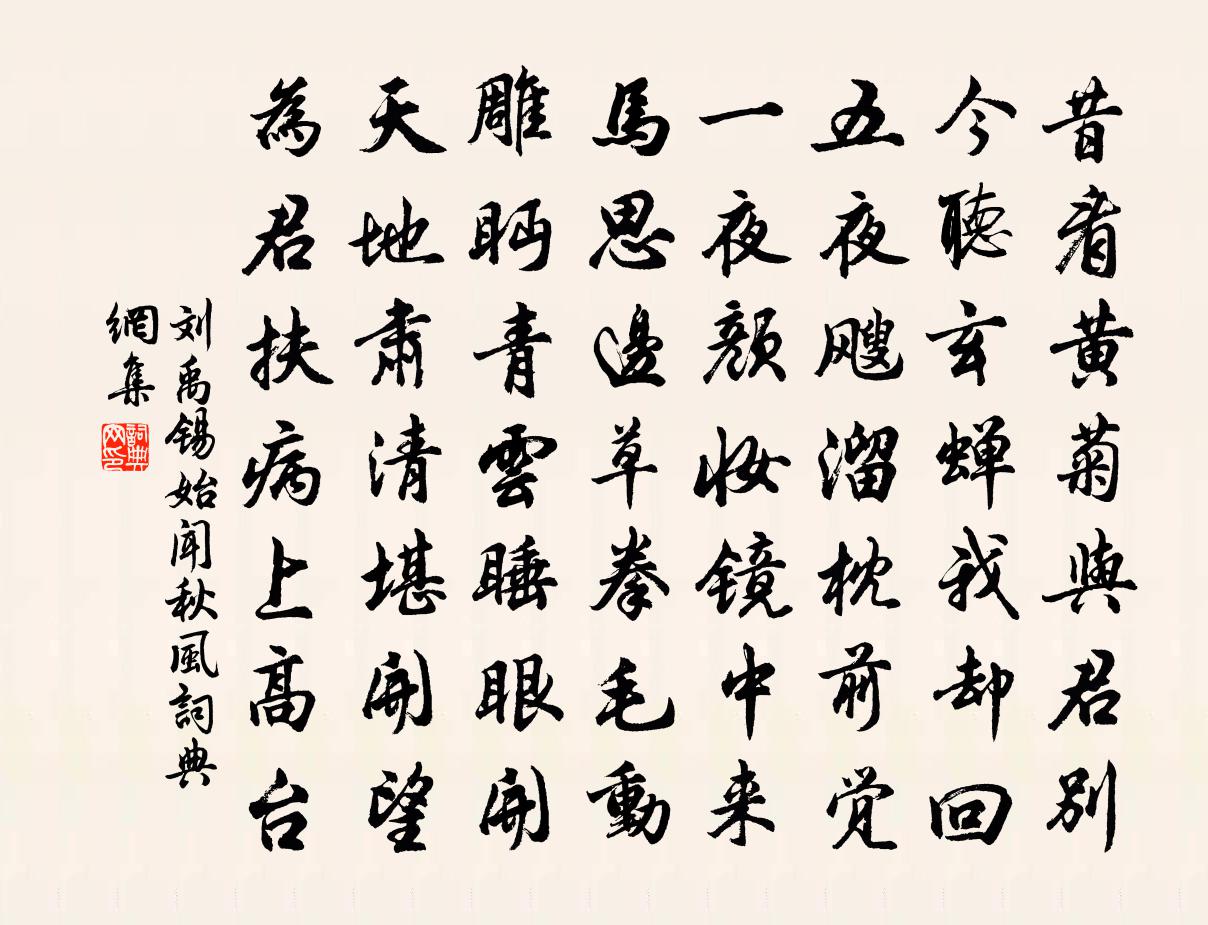 昔看黄菊與君別
今聽玄蝉我却回
五夜飕溜枕前觉
一夜顏妆镜中来
馬思邊草拳毛動
雕眄青雲睡眼開
天地肅清堪開望
為君扶病上高台
刘禹锡始闻秋風詞典
網集
詞典網印